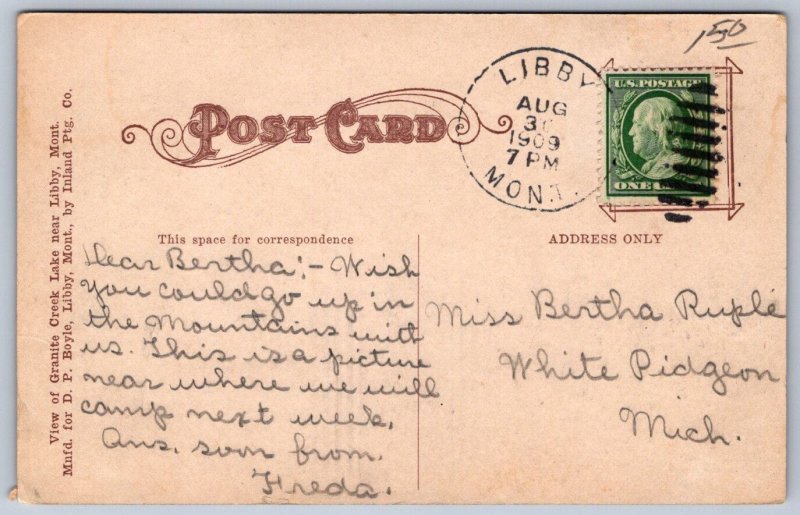 150
POST CARD
LIBBY
AUG
1909
7 PM
MONT.
U.S. POSTAGE
ONE
This space for correspondence
ADDRESS ONLY
Dear Bertha:- Wish
you could go up in
the Mountains with
us. This is a picture
near where we will
camp next week.
Ans. soon from
Freda.
Miss Bertha Ruple
White Pidgeon
Mich.
View of Granite Creek Lake near Libby, Mont.
Mnfd. for D. P. Boyle, Libby, Mont., by Inland Ptg. Co.